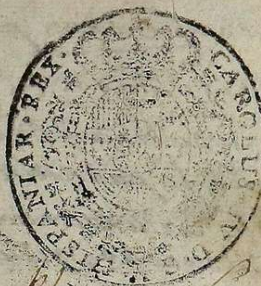 CAROLUS IV D G HISPANIAR · REX ·